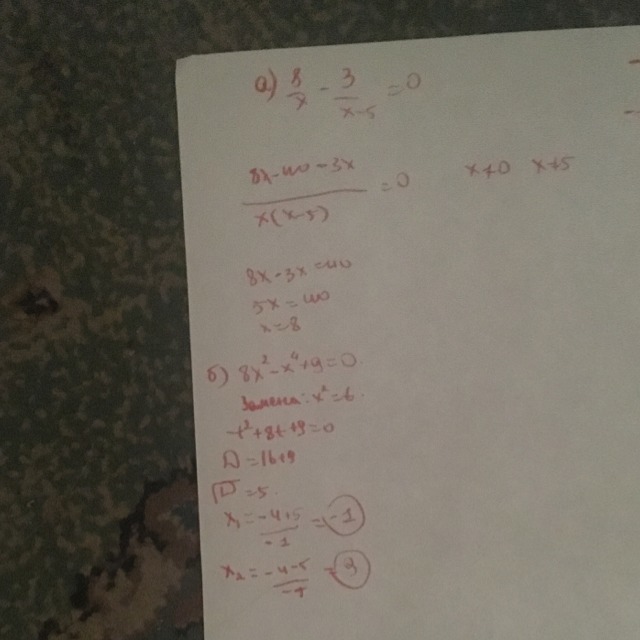 а) 8/x - 3/x-5 = 0
8x-40-3x/x(x-5) = 0 x≠0 x≠5
8x-3x=40
5x=40
x=8
б) 8x²-x⁴+9=0
Замена: x²=t
-t²+8t+9=0
D=16+9
√D=5
x₁=-4+5/-1=-1
x₂=-4-5/-1=9